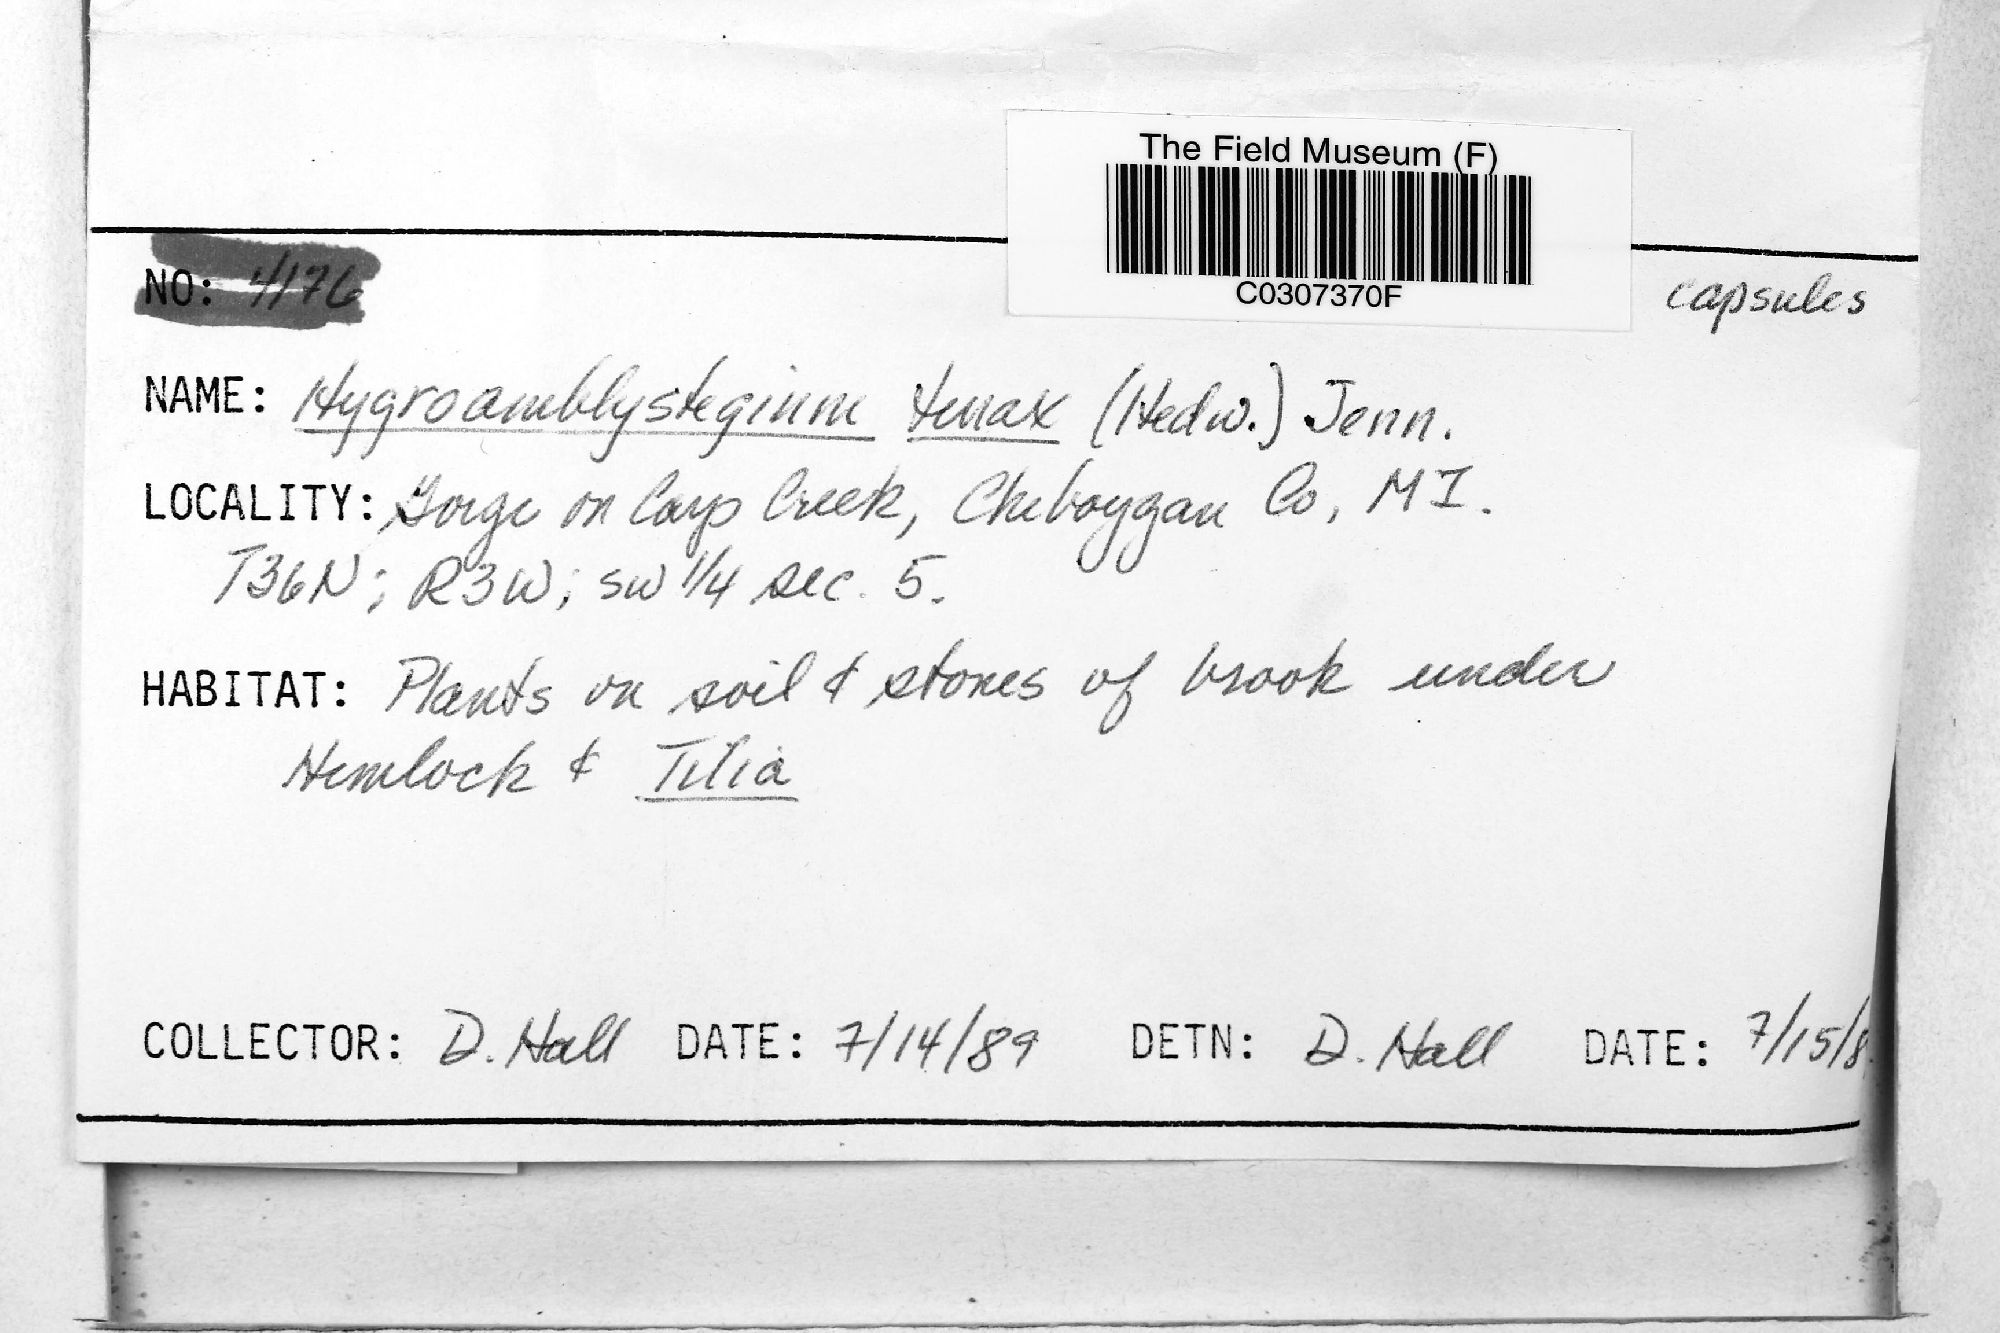 The Field Museum (F)
C0307370F
NO: 4176
capsules
NAME: Hygroamblystegium tenax (Hedw.) Jenn.
LOCALITY: Gorge on Carp Creek, Cheboygan Co, MI.
T36N; R3W; SW 1/4 sec. 5.
HABITAT: Plants on soil & stones of brook under
Hemlock & Tilia
COLLECTOR: D. Hall DATE: 7/14/89 DETN: D. Hall DATE: 7/15/8